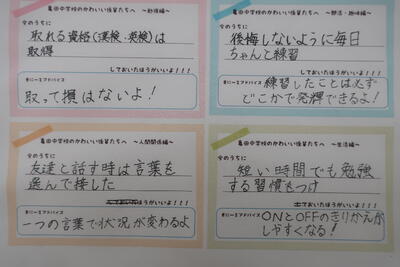 亀田中学校のかわいい後輩たちへ ～勉強編～
今のうちに
取れる資格(漢検・英検)は
取得
しておいたほうがいいよ！！！
取って損はないよ！
亀田中学校のかわいい後輩たちへ ～部活・趣味編～
今のうちに
後悔しないように毎日
ちゃんと練習
しておいたほうがいいよ！！！
練習したことは必ず
どこかで発揮できるよ！
亀田中学校のかわいい後輩たちへ ～人間関係編～
今のうちに
友達と話す時は言葉を
選んで接した
ほうがいいよ！！！
一つの言葉で状況が変わるよ
亀田中学校のかわいい後輩たちへ ～生活編～
今のうちに
短い時間でも勉強
する習慣をつけ
ておいたほうがいいよ！！！
ONとOFFのきりかえが
しやすくなる！